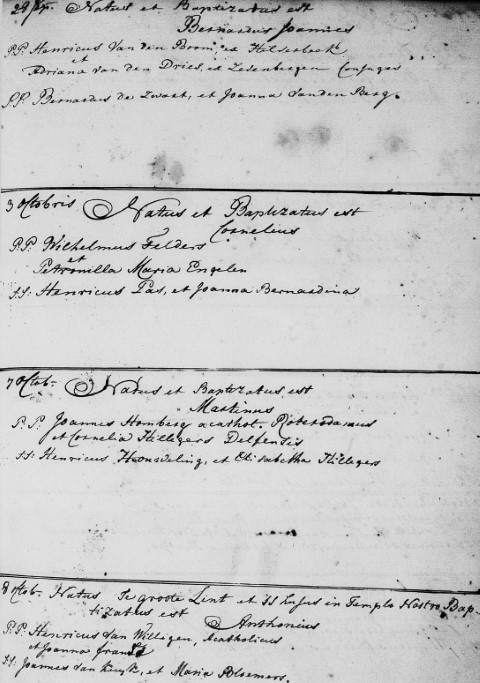 Natus et Baptizatus est
Bernardus Joannes
P.P. Henricus Van den Boom, ex
et
Adriana van den Dries, ex Conjuges
S.S. Bernardus de Zwart, et Joanna Vanden Berg.
3 Octobris Natus et Baptizatus est
Cornelius
P.P. Wilhelmus Felders
et
Petronilla Maria Engelen
SS: Henricus Pas, et Joanna Bernardina
7 Octob. Natus et Baptizatus est
Martinus
P.P. Joannes Homberg acathol. Roterodamus
et Cornelia Hillegers Delfensis
SS: Henricus et Elisabetha Hillegers
8 Octob. Natus Te groote Lint et in Templo Nostro Bap-
tizatus est Anthonius
P.P. Henricus van Willigen, Acatholicus
et Joanna
SS: Joannes van Kuyk, et Maria Bloemers.